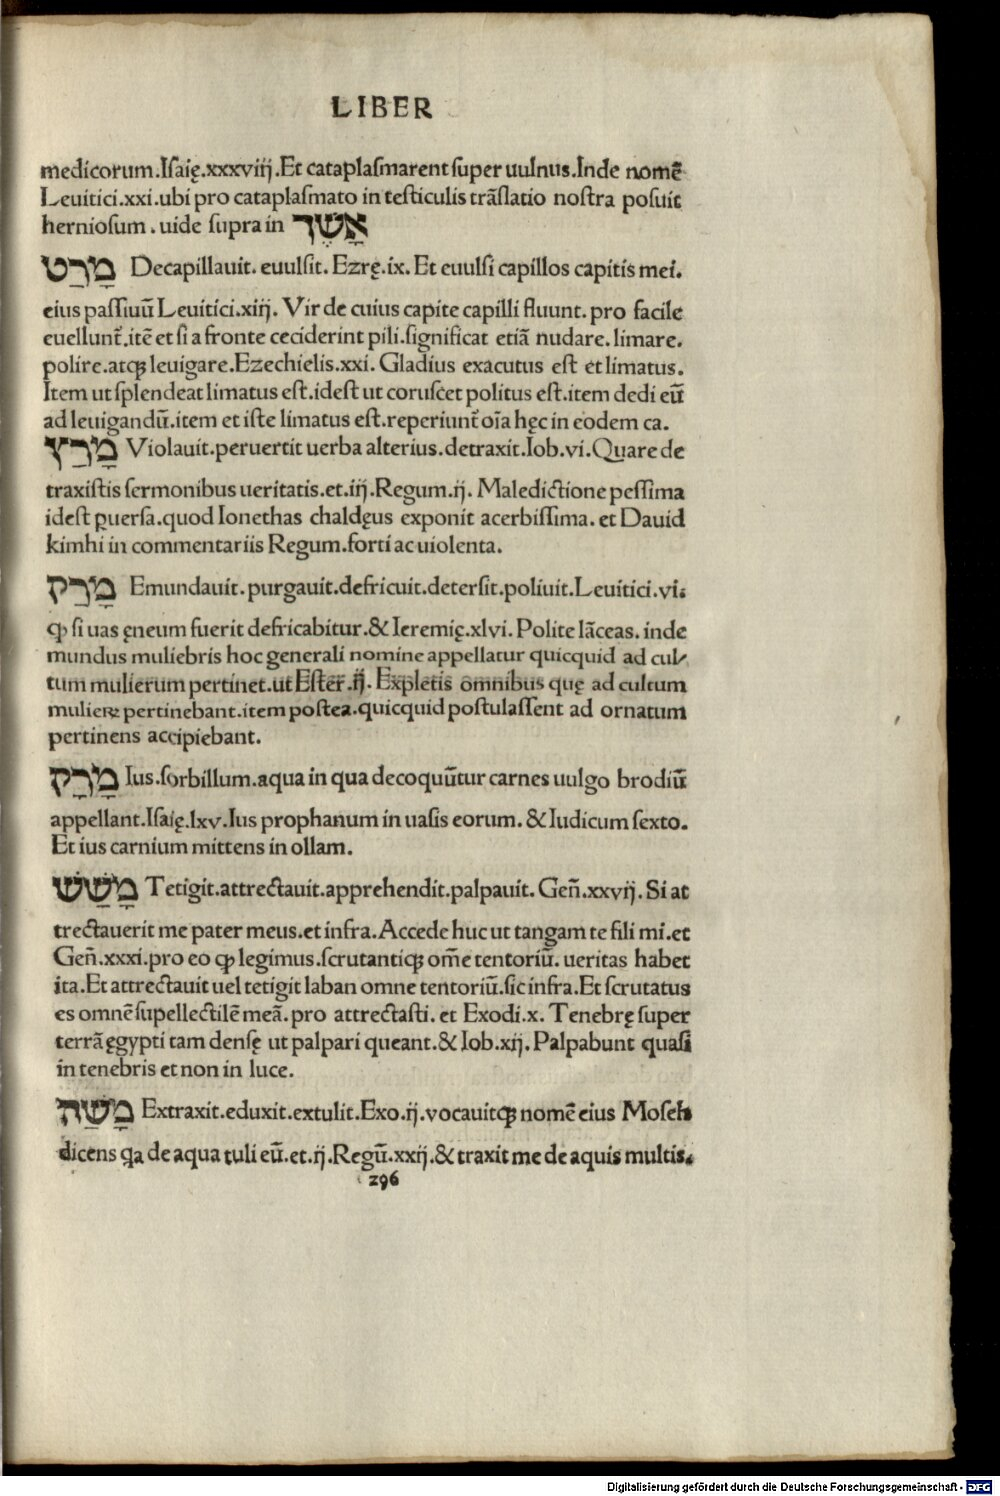 LIBER
medicorum.Iſaię.xxxviij.Et cataplaſmarent ſuper uulnus.Inde nomē
Leuitici.xxi.ubi pro cataplaſmato in teſticulis trāſlatio noſtra poſuit
hernioſum.uide ſupra in אָשֶׁךְ
מָרַט Decapillauit.euulſit.Ezrę.ix.Et euulſi capillos capitis mei.
eius paſſiuū Leuitici.xiij. Vir de cuius capite capilli fluunt.pro facile
euellunt᷑.itē et ſi a fronte ceciderint pili.ſignificat etiā nudare.limare.
polire.atqꝫ leuigare.Ezechielis.xxi. Gladius exacutus eſt et limatus.
Item ut ſplendeat limatus eſt.ideſt ut coruſcet politus eſt.item dedi eū
ad leuigandū.item et iſte limatus eſt.reperiunt᷑ oīa hęc in eodem ca.
מָרַץ Violauit.peruertit uerba alterius.detraxit.Iob.vi.Quare de
traxiſtis ſermonibus ueritatis.et.iij.Regum.ij. Maledictione peſſima
ideſt ꝑuerſa.quod Ionethas chaldęus exponit acerbiſſima.et Dauid
kimhi in commentariis Regum.forti ac uiolenta.
מָרַק Emundauit.purgauit.defricuit.deterſit.poliuit.Leuitici.vi.
ꝙ ſi uas ęneum fuerit defricabitur.& Ieremię.xlvi.Polite lāceas.inde
mundus muliebris hoc generali nomine appellatur quicquid ad cul⸗
tum mulierum pertinet.ut Eſter.ij. Expletis omnibus quę ad cultum
mulieꝝ pertinebant.item poſtea.quicquid poſtulaſſent ad ornatum
pertinens accipiebant.
מָרָק Ius.ſorbillum.aqua in qua decoquūtur carnes uulgo brodiū
appellant.Iſaię.lxv.Ius prophanum in uaſis eorum.& Iudicum ſexto.
Et ius carnium mittens in ollam.
מָשַׁשׁ Tetigit.attrectauit.apprehendit.palpauit.Geñ.xxvij.Si at
trectauerit me pater meus.et infra.Accede huc ut tangam te fili mi.et
Geñ.xxxi.pro eo ꝙ legimus.ſcrutantiqꝫ om̄e tentoriū. ueritas habet
ita.Et attrectauit uel tetigit laban omne tentoriū.ſic infra.Et ſcrutatus
es omnē ſupellectilē meā.pro attrectaſti.et Exodi.x. Tenebrę ſuper
terrā ęgypti tam denſę ut palpari queant.& Iob.xij. Palpabunt quaſi
in tenebris et non in luce.
מָשַׁה Extraxit.eduxit.extulit.Exo.ij.vocauitqꝫ nomē eius Moſeh
dicens qa de aqua tuli eū.et.ij.Regū.xxij.& traxit me de aquis multis.
296
Digitalisierung gefördert durch die Deutsche Forschungsgemeinschaft - DFG